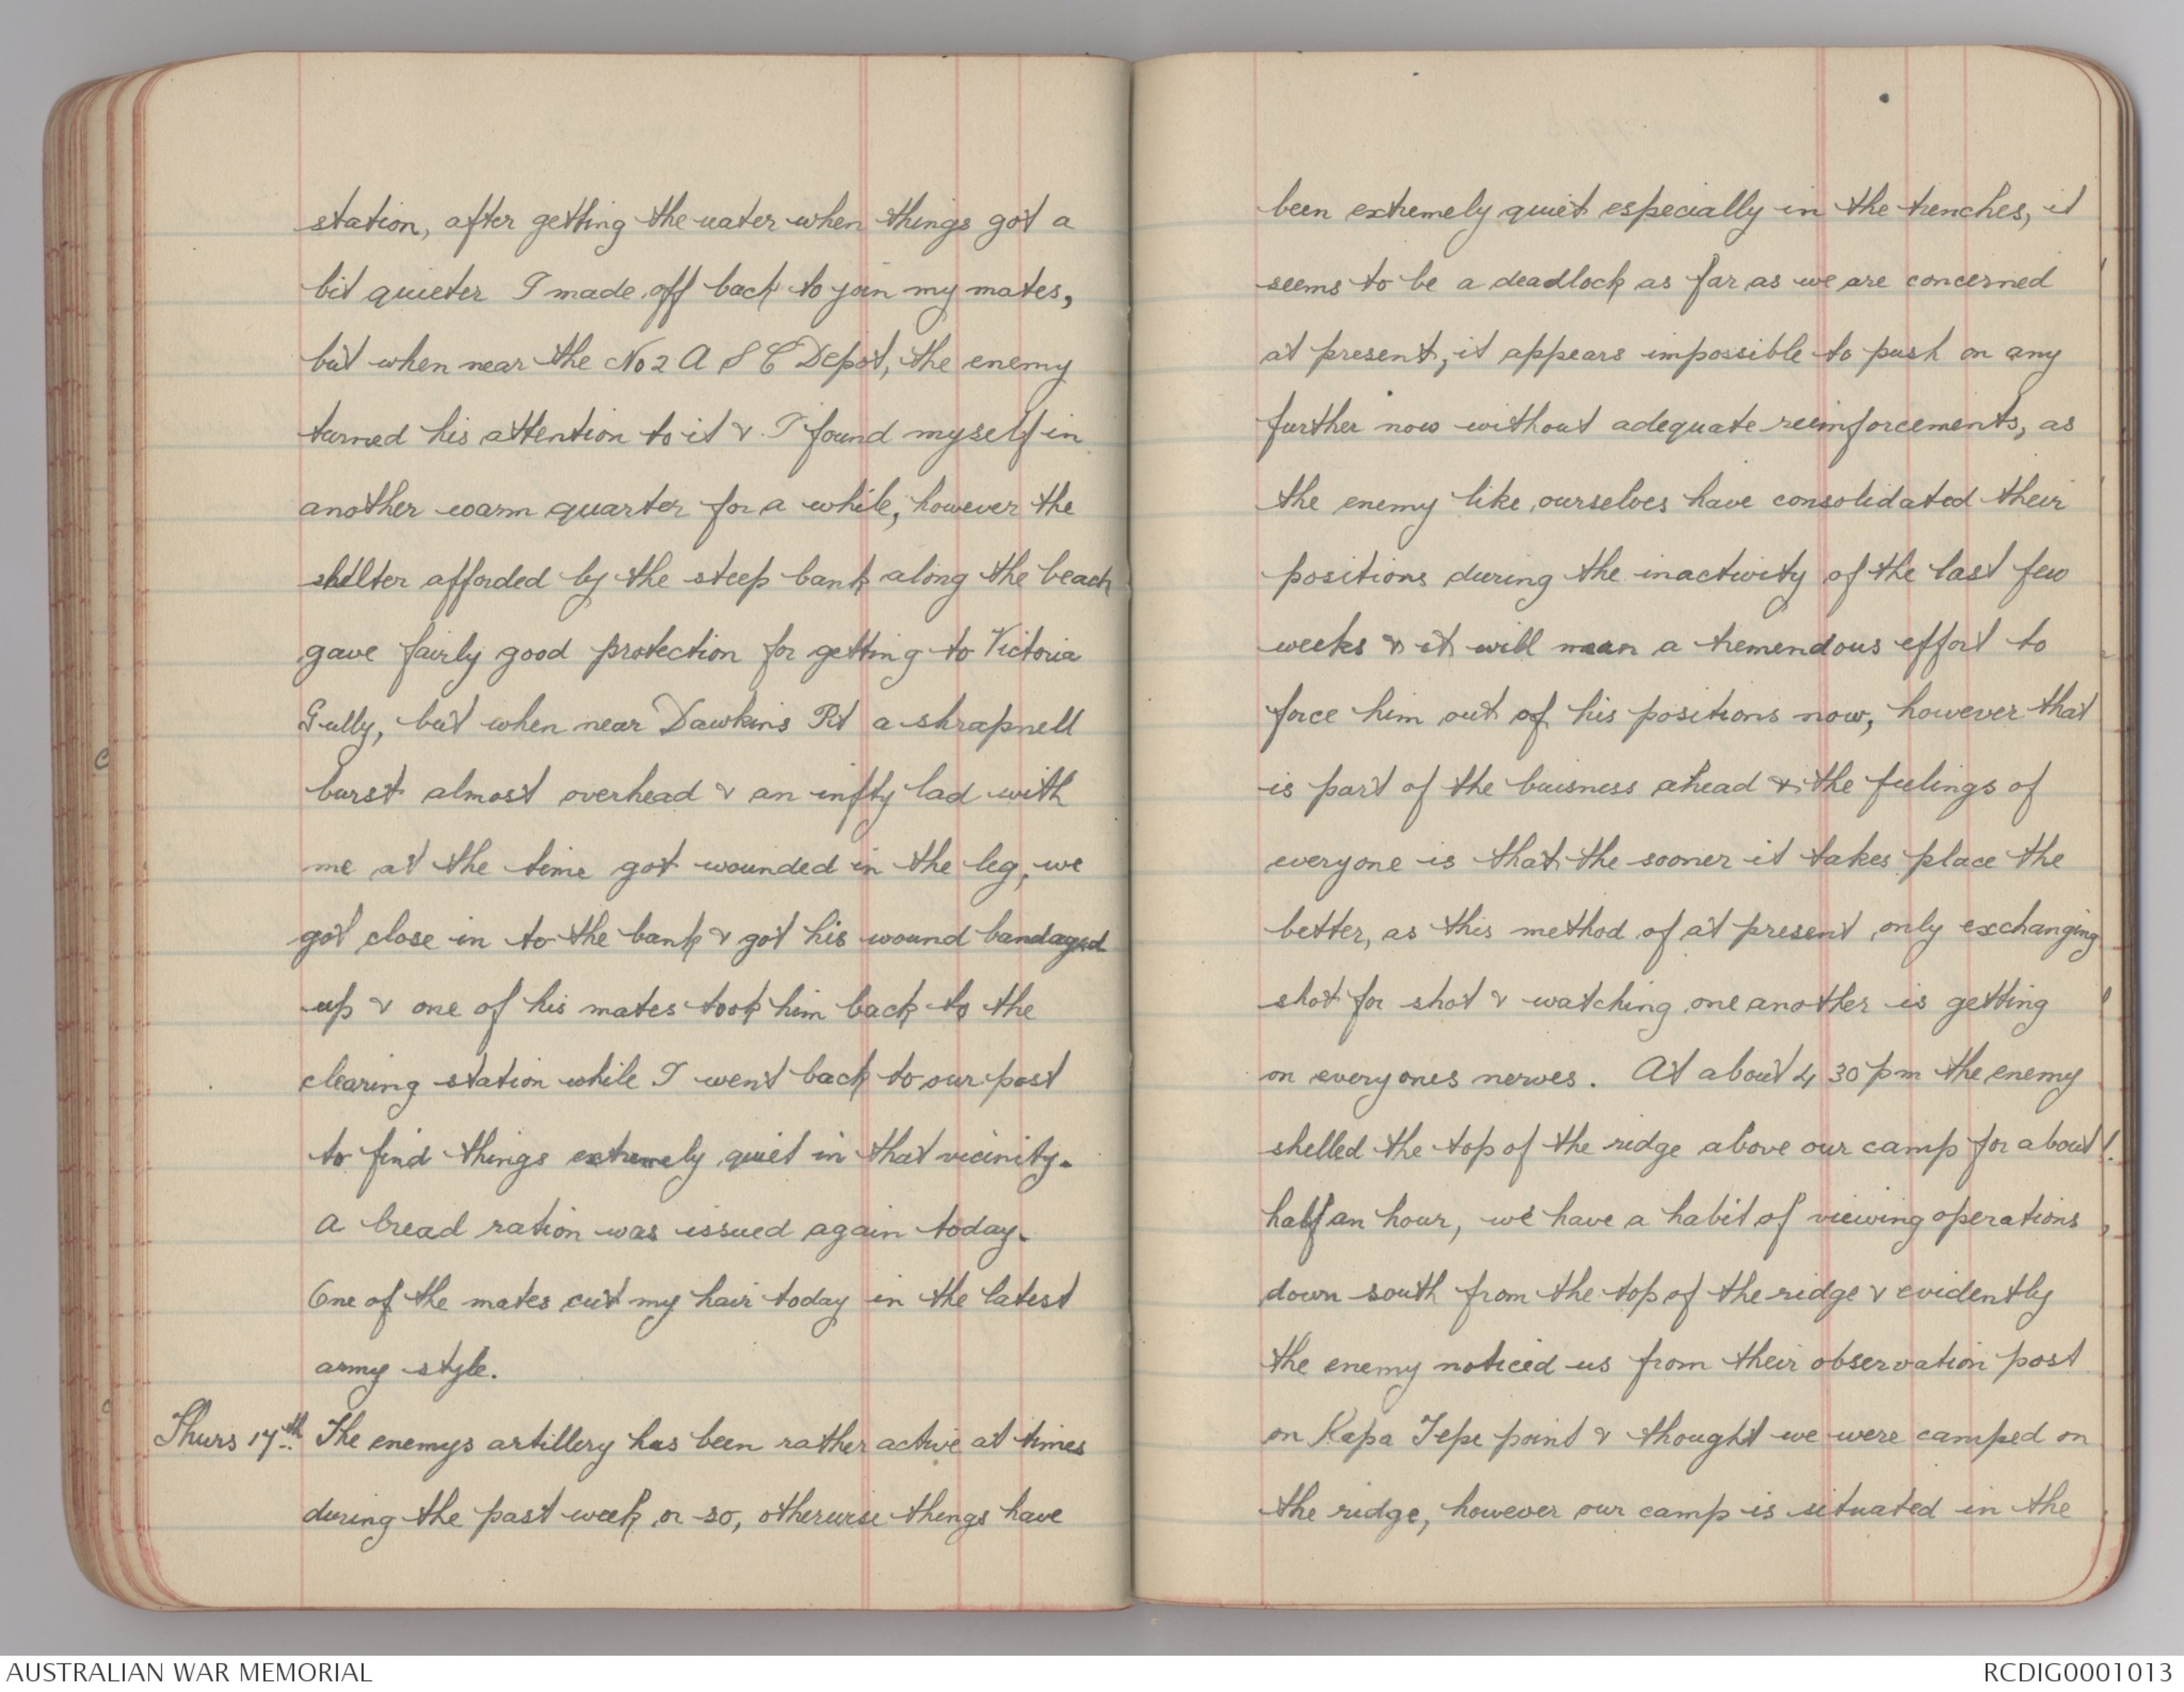 station, after getting the water when things got a
bit quieter I made off back to join my mates,
but when near the No 2 A S C Depot, the enemy
turned his attention to it & I found myself in
another warm quarter for a while, however the
shelter afforded by the steep bank along the beach
gave fairly good protection for getting to Victoria
Gully, but when near Dawkins Pt a shrapnell
burst almost overhead & an infty lad with
me at the time got wounded in the leg, we
got close in to the bank & got his wound bandaged
up & one of his mates took him back to the
clearing station while I went back to our post
to find things extremely quiet in that vicinity.
A bread ration was issued again today.
One of the mates cut my hair today in the latest
army style.
Thurs 17th. The enemys artillery has been rather active at times
during the past week or so, otherwise things have
been extremely quiet especially in the trenches, it
seems to be a deadlock as far as we are concerned
at present, it appears impossible to push on any
further now without adequate reinforcements, as
the enemy like ourselves have consolidated their
positions during the inactivity of the last few
weeks & it will mean a tremendous effort to
force him out of his positions now, however that
is part of the buisness ahead & the feelings of
everyone is that the sooner it takes place the
better, as this method of at present only exchanging
shot for shot & watching one another is getting
on everyones nerves. At about 4 30 pm the enemy
shelled the top of the ridge above our camp for about
half an hour, we have a habit of viewing operations
down south from the top of the ridge & evidently
the enemy noticed us from their observation post
on Kapa Tepe point & thought we were camped on
the ridge, however our camp is situated in the
AUSTRALIAN WAR MEMORIAL
RCDIG0001013